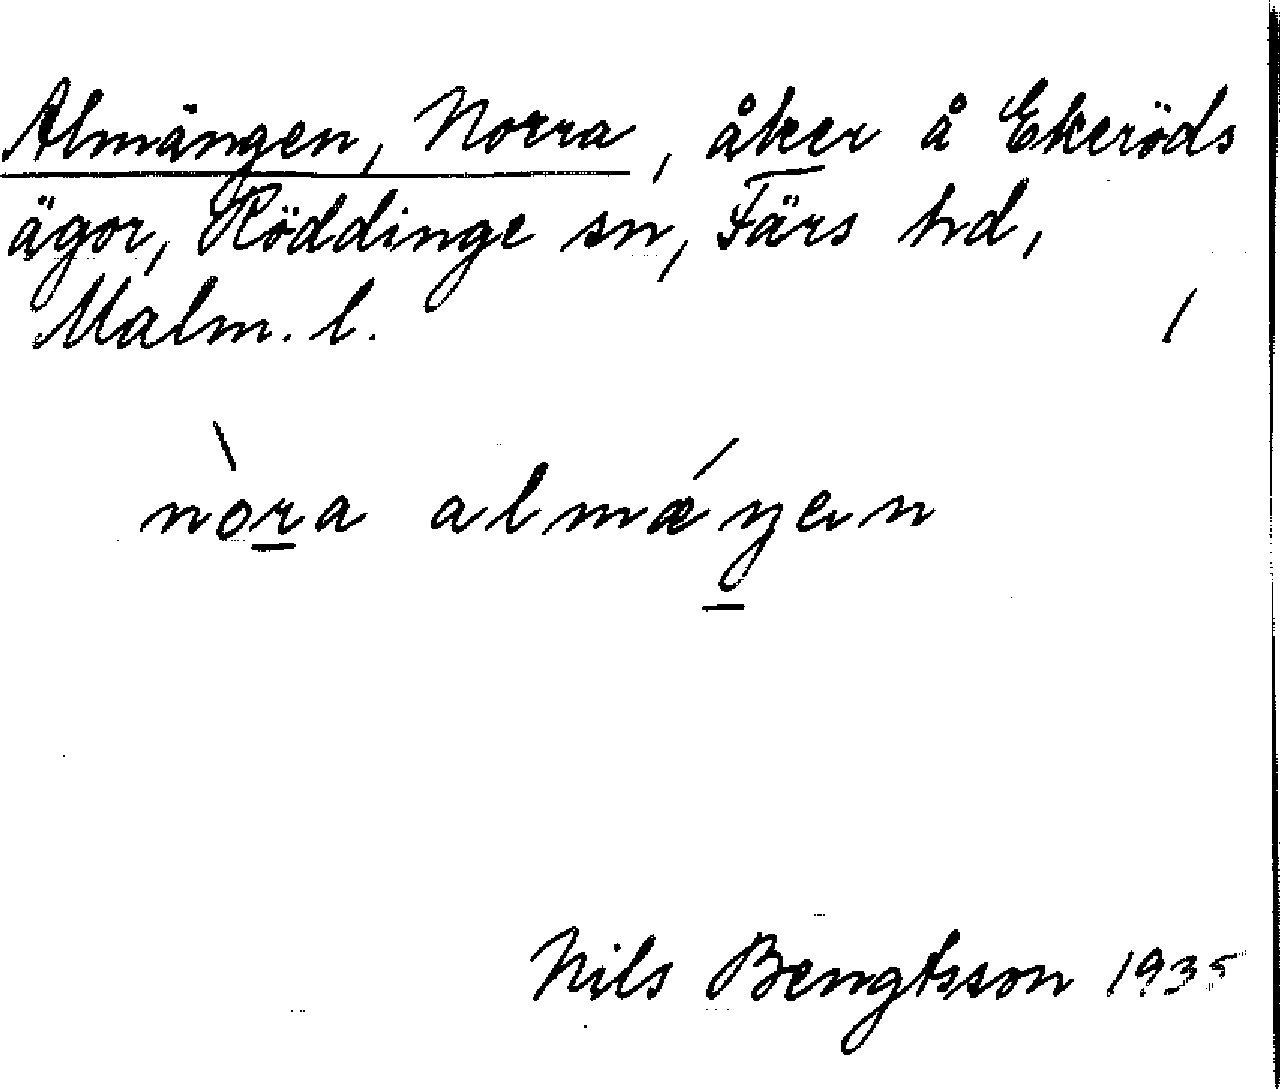 Almängen, Norra, åker å Ekeröds
ägor, Röddinge sn, Färs hd,
Malm. l.
nòra almǽŋen
Nils Bengtsson 1935